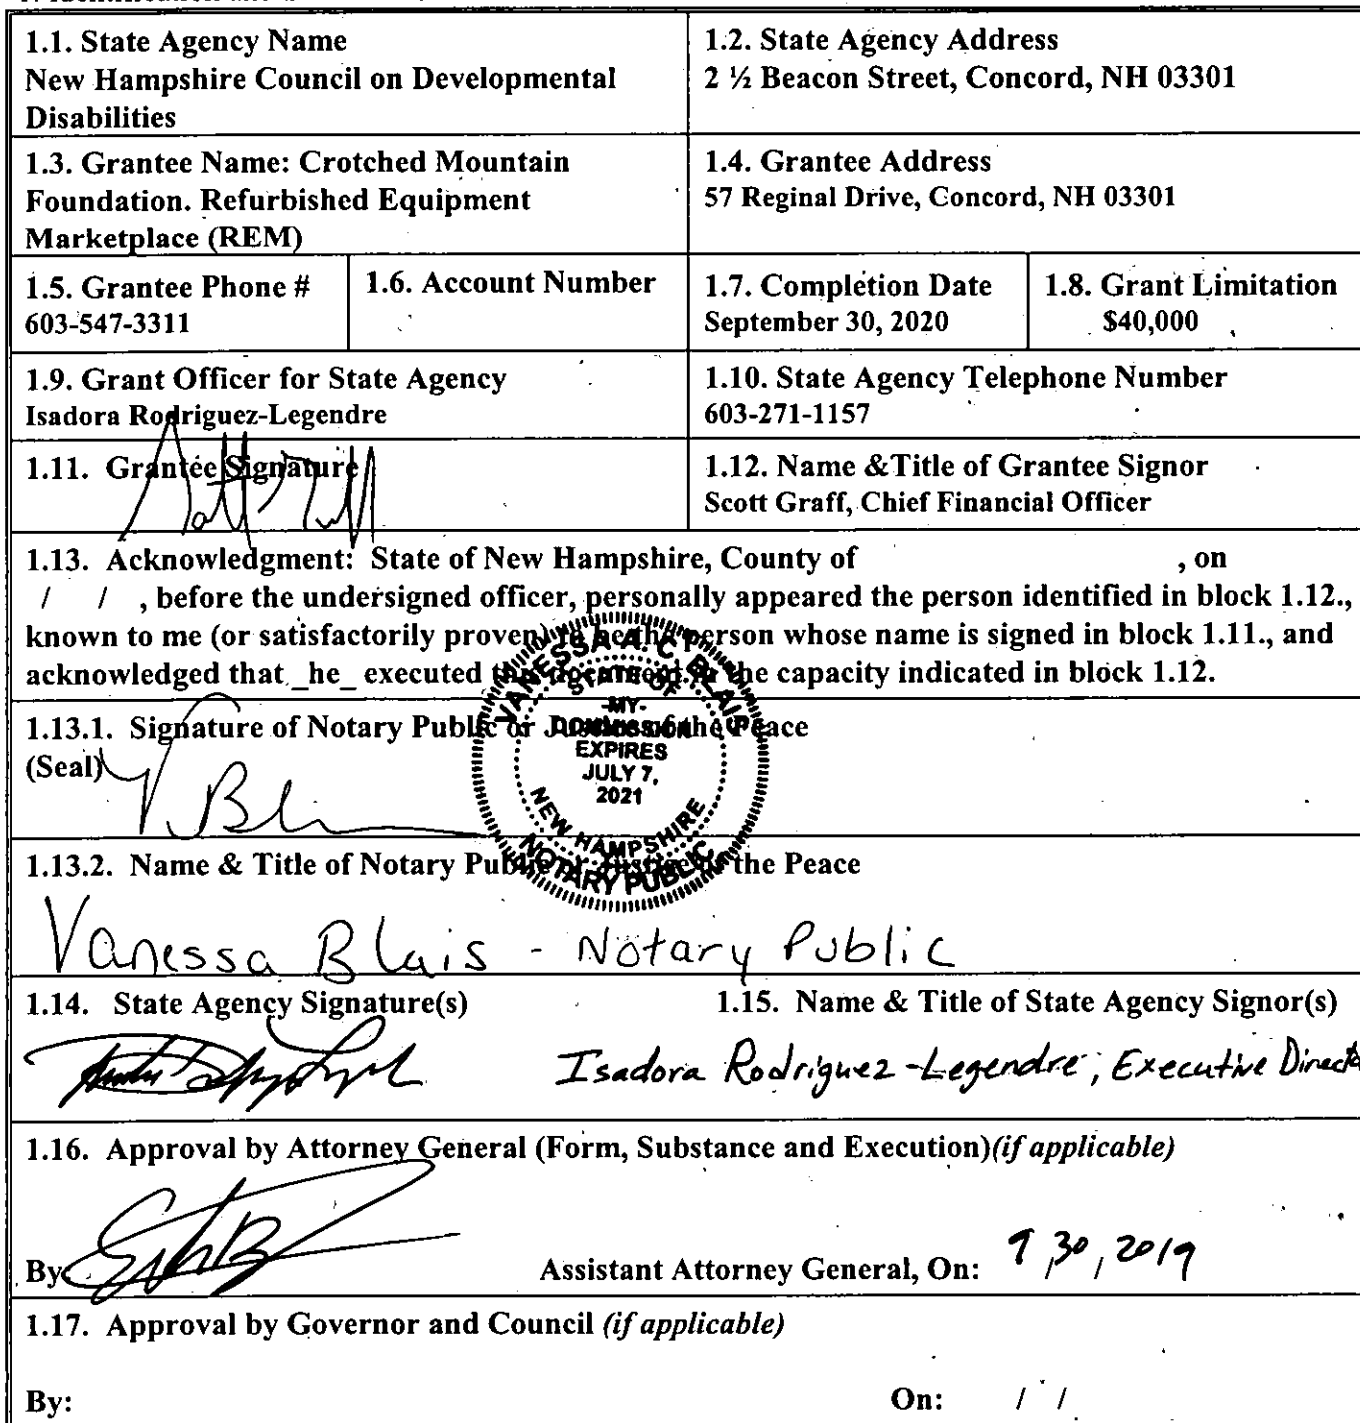 1.1. State Agency Name
New Hampshire Council on Developmental
Disabilities
1.2. State Agency Address
2 ½ Beacon Street, Concord, NH 03301
1.3. Grantee Name: Crotched Mountain
Foundation. Refurbished Equipment
Marketplace (REM)
1.4. Grantee Address
57 Reginal Drive, Concord, NH 03301
1.5. Grantee Phone #
603-547-3311
1.6. Account Number
1.7. Completion Date
September 30, 2020
1.8. Grant Limitation
$40,000
1.9. Grant Officer for State Agency
Isadora Rodriguez-Legendre
1.10. State Agency Telephone Number
603-271-1157
1.11. Grantee Signature
1.12. Name &Title of Grantee Signor
Scott Graff, Chief Financial Officer
1.13. Acknowledgment: State of New Hampshire, County of , on
/ / , before the undersigned officer, personally appeared the person identified in block 1.12.,
known to me (or satisfactorily proven) to be the person whose name is signed in block 1.11., and
acknowledged that _he_ executed this document in the capacity indicated in block 1.12.
VANESSA A. C. BLAIR
STATE OF
-MY-
COMMISSION
EXPIRES
JULY 7,
2021
NEW HAMPSHIRE
NOTARY PUBLIC
1.13.1. Signature of Notary Public or Justice of the Peace
(Seal)
1.13.2. Name & Title of Notary Public or Justice of the Peace
Vanessa Blais - Notary Public
1.14. State Agency Signature(s)
1.15. Name & Title of State Agency Signor(s)
Isadora Rodriguez-Legendre, Executive Director
1.16. Approval by Attorney General (Form, Substance and Execution)(if applicable)
By:
Assistant Attorney General, On: 9/30/2019
1.17. Approval by Governor and Council (if applicable)
By: On: / /